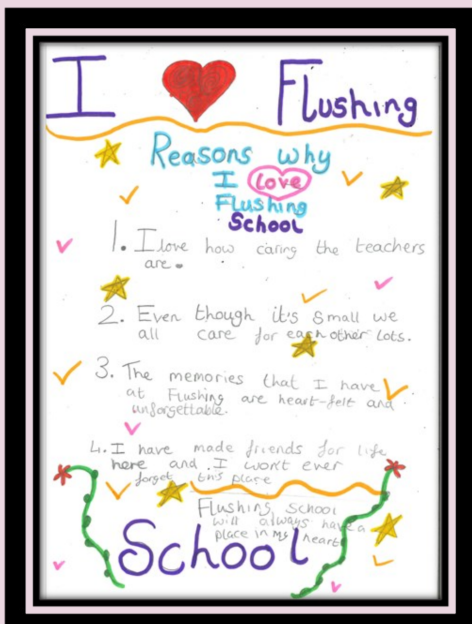 I Flushing
Reasons why
I love
Flushing
School
1. I love how caring the teachers
are.
2. Even though it's small we
all care for each other lots.
3. The memories that I have
at Flushing are heart-felt and
unforgettable.
4. I have made friends for life
here and I won't ever
forget this place
Flushing school
will always have a
place in my heart
School